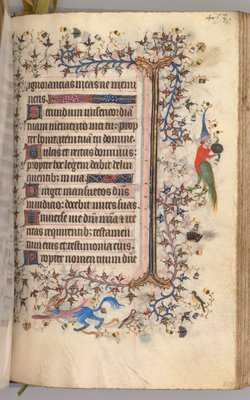 ignorancias meas ne memi
neris.
Secundum misericordiam
tuam memento mei tu: prop
ter bonitatem tuam domine.
Dulcis et rectus dominus:
propter hoc legem dabit delin
quentibus in via
Diriget mansuetos
in iudicio: docebit mites vias
Universe vie domini et ve
ritas requirentibus testamen
tum eius et testimonia eius.
Propter nomen tuum dne